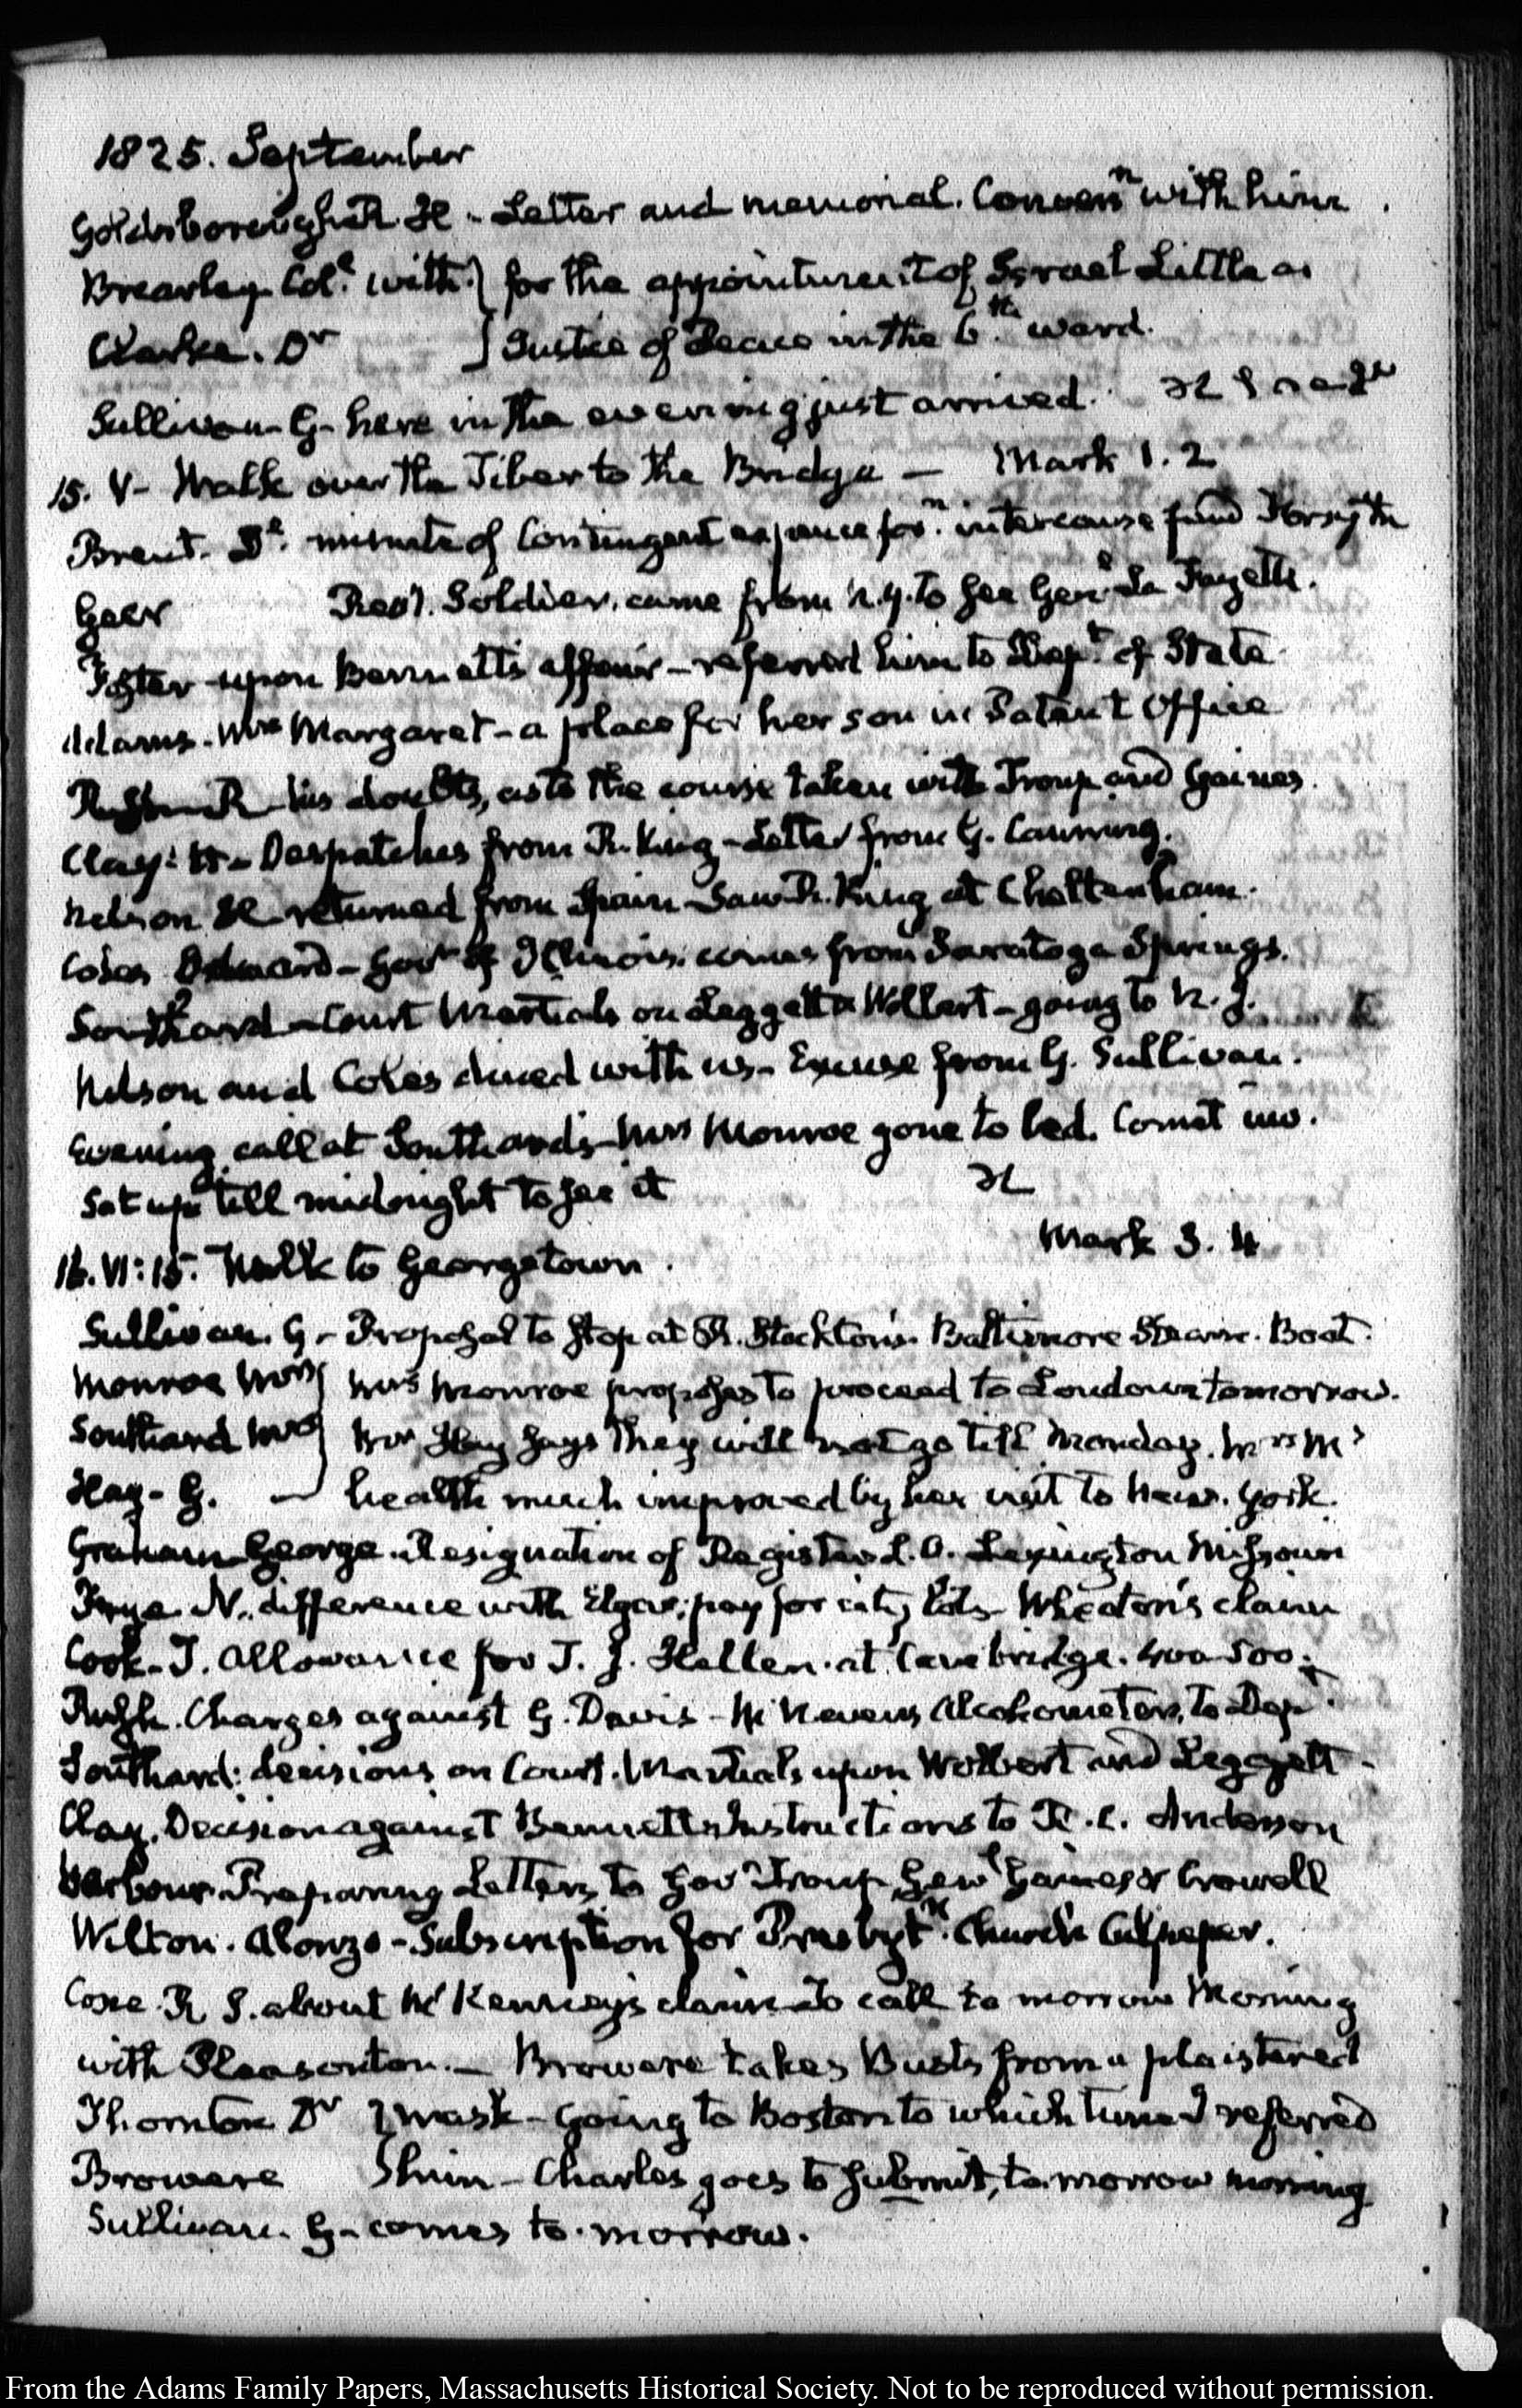 1825. September
Goldsborough R. H - Letter and memorial. Conversn with him.
Brearley Col. with } for the appointment of Israel Little as
Clarke. Dr } Justice of Peace in the 6th ward.
Sullivan. G- here in the evening just arrived.
15. V- Walk over the Tiber to the Bridge — Mark 1. 2
Brent. Dl. minute of Contingent expence forn. intercourse fund Forsyth
Geer Revl. Soldier. came from N.Y. to see Genl La Fayette.
Foster upon Bennett's affair - referred him to Dept. of State
Adams. Mrs Margaret - a place for her son in Patent Office
Rush R his doubts, as to the course taken with Troup and Gaines.
Clay: H - Despatches from R. King - Letter from G. Canning.
Nelson H returned from Spain - Saw R. King at Cheltenham.
Coles Edward - Govr of Illinois. comes from Saratoga Springs.
Southard - Court Martials on Leggett & Wolbert - going to N. J.
Nelson and Coles dined with us - Excuse from G. Sullivan.
Evening call at Southard's - Mrs Monroe gone to bed. Comet inv.
Sat up till midnight to see it
16. VI: 15. Walk to Georgetown. Mark 3. 4
Sullivan. G - Proposal to stop at R. Stockton's. Baltimore Steam. Boat.
Monroe Mrs } Mrs Monroe proposes to proceed to Loudoun tomorrow.
Southard Mrs } Mr Hay says they will not go till Monday. Mrs M's
Hay - G. — health much improved by her visit to New. York.
Graham George. Resignation of Register L. O. Lexington Missouri
Frye N. difference with Elgar; pay for city lots - Wheaton's claim
Cook - T. allowance for T. J. Hellen. at Cambridge. 400-500.
Rush. Charges against G. Davis - McNevens Alcohometers, to Dept.
Southard: decisions on Court. Martials upon Wolbert and Leggett -
Clay. Decision against Bennett - Instructions to R. C. Anderson
Barbour Preparing Letters to Govr Troup Genl Gaines & Crowell
Wilton. Alonzo - Subscription for Presbytn. Church Culpeper.
Coxe. R S. about McKenney's claim - to call to morrow Morning
with Pleasonton. — Browere takes Busts from a plaistered
Thornton Dr } mask - Going to Boston to which time I referred
Browere } him - Charles goes to submit, to morrow morning
Sullivan. G - comes to. morrow.
From the Adams Family Papers, Massachusetts Historical Society. Not to be reproduced without permission.